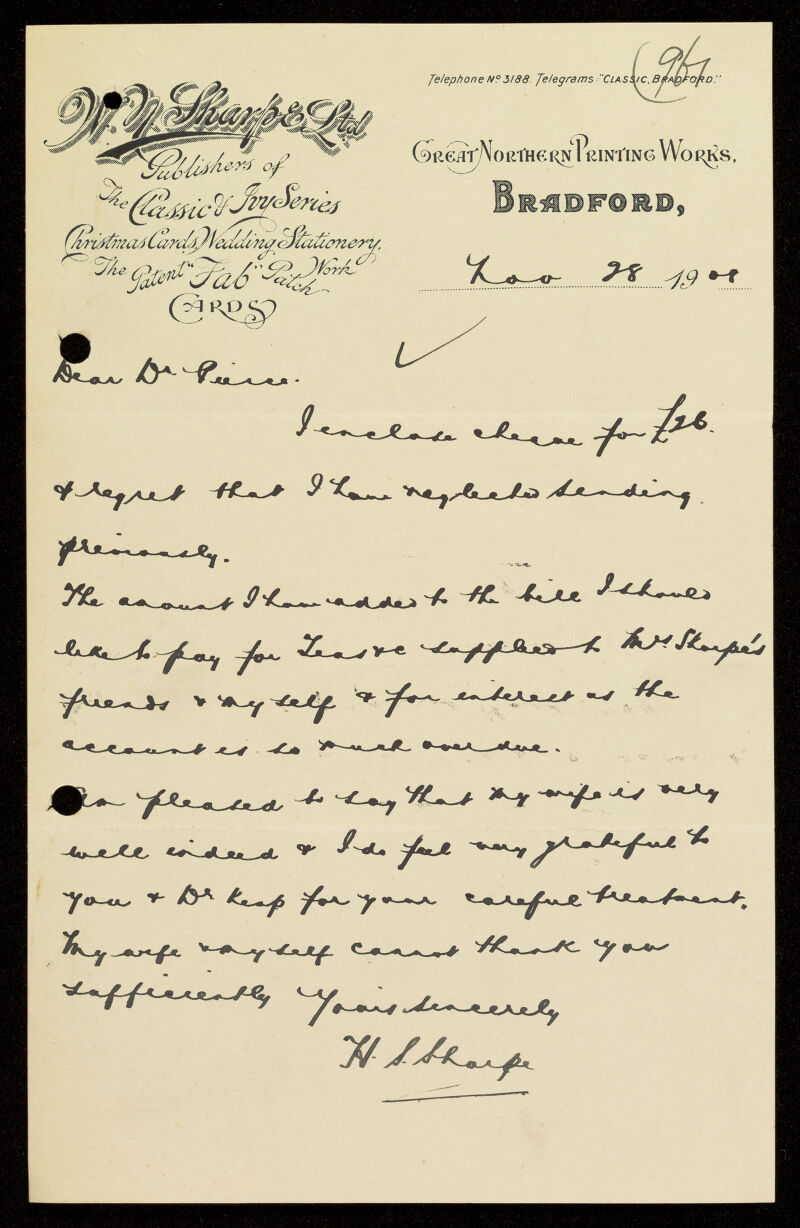 96
Telephone No 3188. Telegrams "CLASSIC, BRADFORD."
W. N. Sharpe Ltd
Publishers of
The Classic & Ivy Series
Christmas Cards, Wedding Stationery.
The Patent "Fab" Patch Work
CARDS
GREAT NORTHERN PRINTING WORKS,
BRADFORD,
Nov 28 1908
Dear Dr Pierce.
I enclose cheque for £26.
& regret that I have neglected sending
previously.
The amount I have added to the bill I should
like to pay for Teas &c supplied to Mrs Sharpe's
friends & myself & for interest as the
account is so much overdue.
Am pleased to say that my wife is very
well indeed & I do feel very grateful to
you & Dr Kemp for your careful treatment.
My wife & myself cannot thank you
sufficiently Yours sincerely
H. S. Sharpe